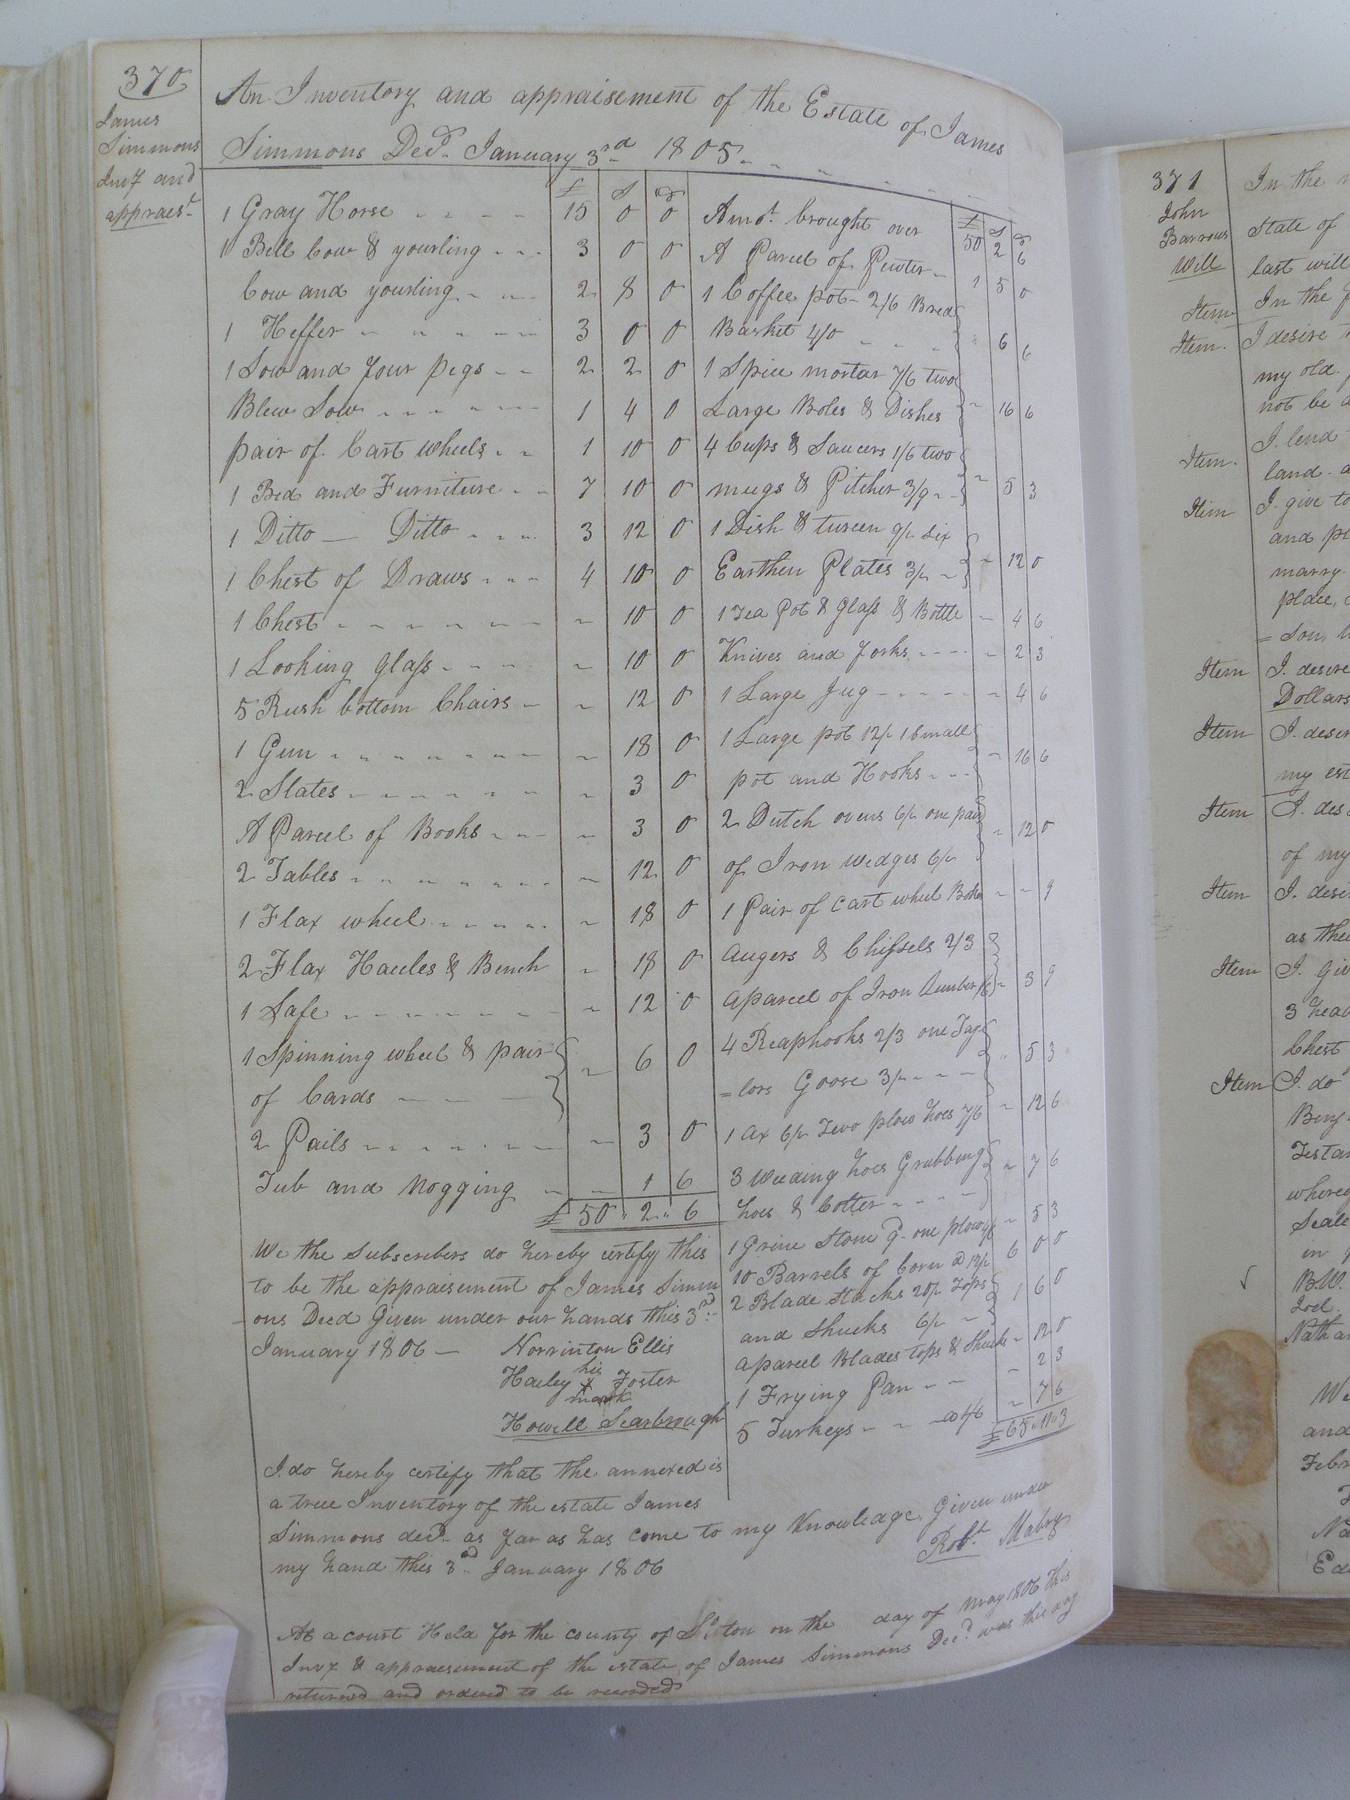 370
James
Simmons
Invy and
appraest
An Inventory and appraisement of the Estate of James
Simmons Decd. January 3rd 1805
£ S d
1 Gray Horse 15 0 0
1 Bell Cow & yourling 3 0 0
Cow and yourling 2 8 0
1 Heffer 3 0 0
1 Sow and four pegs 2 2 0
Blew Sow 1 4 0
pair of Cart wheels 1 10 0
1 Bed and Furniture 7 10 0
1 Ditto — Ditto 3 12 0
1 Chest of Draws 4 10 0
1 Chest " 10 0
1 Looking Glass " 10 0
5 Rush bottom Chairs " 12 0
1 Gun " 18 0
2 Slates " 3 0
A Parcel of Books " 3 0
2 Tables " 12 0
1 Flax wheel " 18 0
2 Flax Hacles & Bench " 18 0
1 Safe " 12 0
1 Spinning wheel & pair
of Cards " 6 0
2 Pails " 3 0
Tub and Nogging " 1 6
£ 50 " 2 " 6
£ S d
Amot. brought over 50 2 6
A Parcel of Pewter 1 5 0
1 Coffee pot 2/6 Bread
Basket 4/0 " 6 6
1 Spice mortar 7/6 two
Large Boles & Dishes " 16 6
4 Cups & Saucers 1/6 two
mugs & Pitcher 3/9 " 5 3
1 Dish & tureen 9/ six
Earthen Plates 3/ " 12 0
1 Tea Pot & Glass & Bottle " 4 6
Knives and forks " 2 3
1 Large Jug " 4 6
1 Large pot 12/ 1 Small
pot and Hooks " 16 6
2 Dutch ovens 6/ one pair
of Iron wedges 6/ " 12 0
1 Pair of Cart wheel Boxes " " 9
Augers & Chissels 2/3
a parcel of Iron 1/6 " 3 9
4 Reaphooks 2/3 one Tay
=lors Goose 3/ " 5 3
1 ax 6/ Two plow hoes 7/6 " 12 6
3 Weeding hoes Grubbing
hoes & Cotter " 7 6
1 Grine Stone one plow " 5 3
10 Barrels of Corn @ 12/ 6 0 0
2 Blade Stacks 20/ Tops
and Shucks 6/ 1 6 0
a parcel Blades tops & Shucks " 12 0
1 Frying Pan " 2 3
5 Turkeys @ 1/6 " 7 6
£ 65 " 11 " 3
We the Subscribers do hereby certify this
to be the appraisement of James Simm
ons Decd Given under our hands this 3rd
January 1806 — Norrinton Ellis
his
Haley x Foster
mark
Howell Scarbrough
I do hereby certify that the annexed is
a true Inventory of the estate James
Simmons decd. as far as has come to my Knowledge, Given under
my hand this 3rd January 1806
Robt. Mabry
At a court Held for the county of on the day of may 1806 this
Invy & appraesment of the estate of James Simmons Decd was this day
returned and ordered to be recorded
371
John
Barrows
Will
In the
State of
last will
Item In the
Item. I desire
my old
not be
Item. I lend
land
Item I give to
and
marry
place,
= Son
Item I desire
Dollars
Item I. desir
my est
Item I. des
of my
Item I. desi
as the
Item I. giv
3 head
Chest
Item I. do
Benj
Testa
where
Seale
in
B.W.
Natha
We
and
Febr
Ed